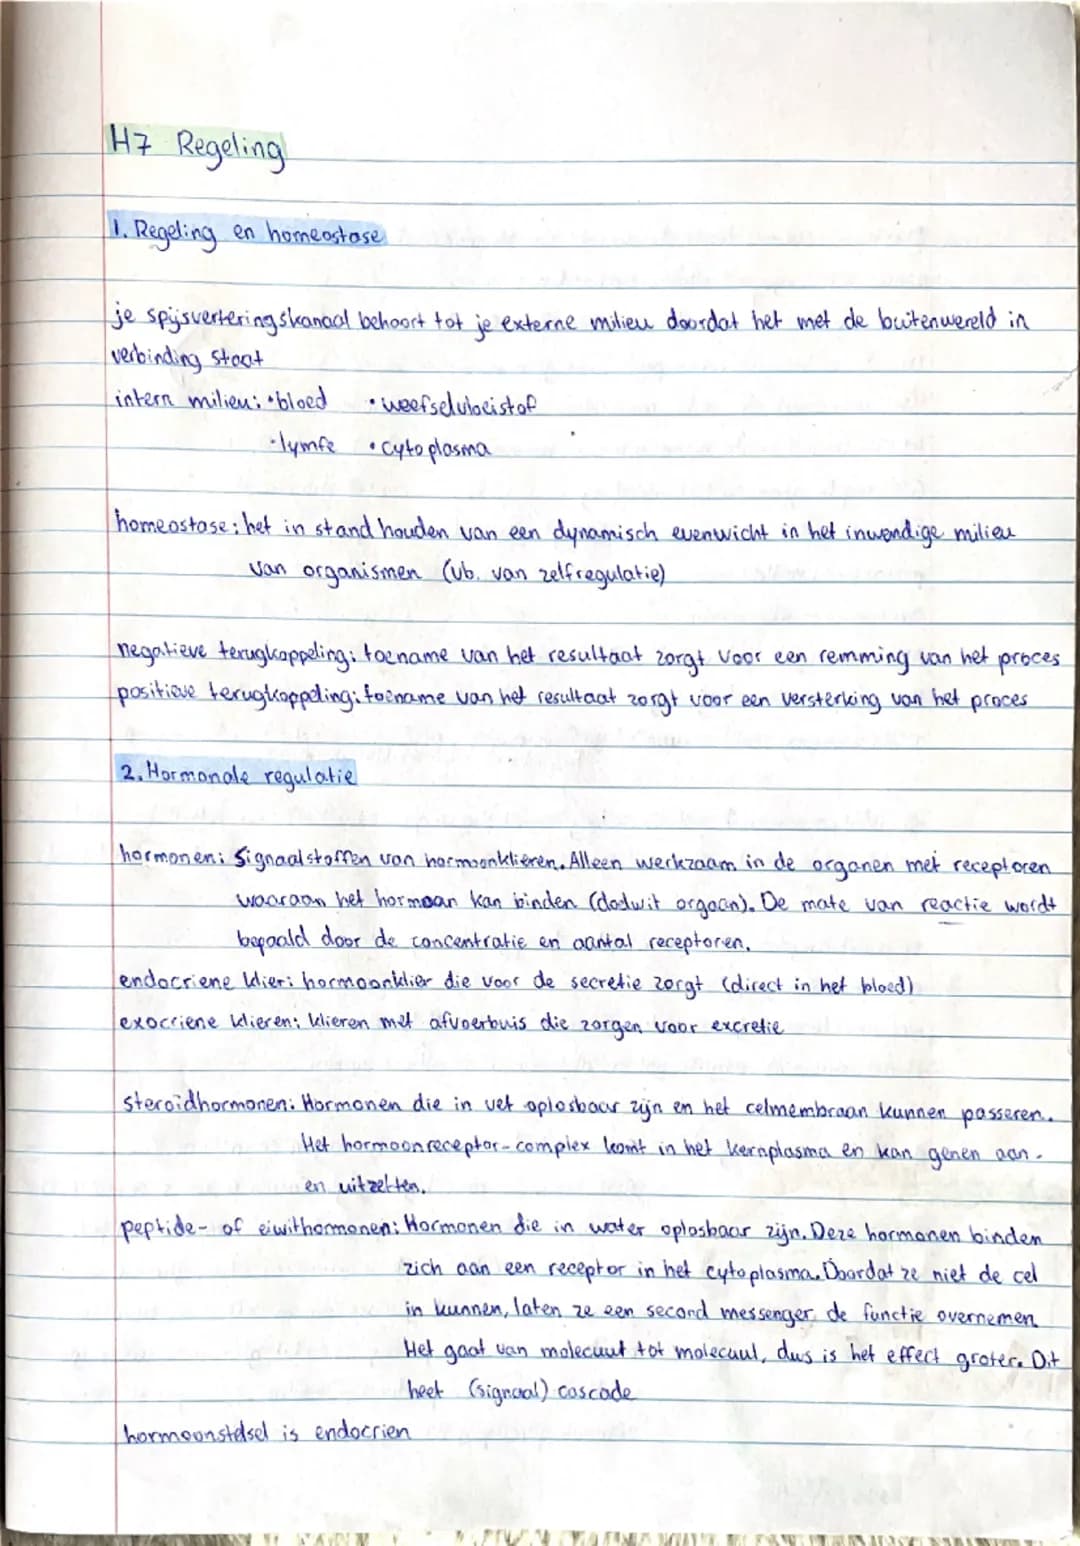 H7 Regeling
1. Regeling en homeostase
je spijsverteringskanaal behoort tot je externe milieu doordat het met de buitenwereld in
verbinding staat
intern milieu: • bloed • weefselvloeistof
• lymfe • cytoplasma
homeostase: het in stand houden van een dynamisch evenwicht in het inwendige milieu
van organismen (vb. van zelfregulatie)
negatieve terugkoppeling: toename van het resultaat zorgt voor een remming van het proces
positieve terugkoppeling: toename van het resultaat zorgt voor een versterking van het proces
2. Hormonale regulatie
hormonen: Signaalstoffen van hormoonklieren. Alleen werkzaam in de organen met receptoren
waaraan het hormoon kan binden (doelwit orgaan). De mate van reactie wordt
bepaald door de concentratie en aantal receptoren.
endocriene klier: hormoonklier die voor de secretie zorgt (direct in het bloed)
exocriene klieren: klieren met afvoerbuis die zorgen voor excretie
steroïdhormonen: Hormonen die in vet oplosbaar zijn en het celmembraan kunnen passeren.
Het hormoonreceptor-complex komt in het kernplasma en kan genen aan-
en uitzetten.
peptide- of eiwithormonen: Hormonen die in water oplosbaar zijn. Deze hormonen binden
zich aan een receptor in het cytoplasma. Doordat ze niet de cel
in kunnen, laten ze een second messenger de functie overnemen
Het gaat van molecuul tot molecuul, dus is het effect groter. Dit
heet (signaal) cascade
hormoonstelsel is endocrien